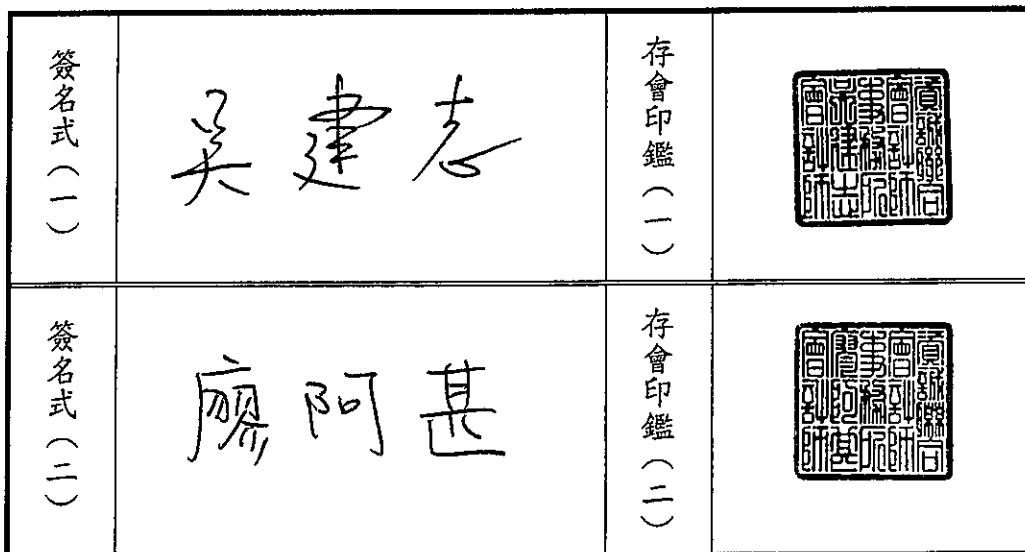 簽名式(一)
吳建志
存會印鑑(一)
資誠聯合
會計師
事務所
吳建志
會計師
簽名式(二)
廖阿甚
存會印鑑(二)
資誠聯合
會計師
事務所
廖阿甚
會計師